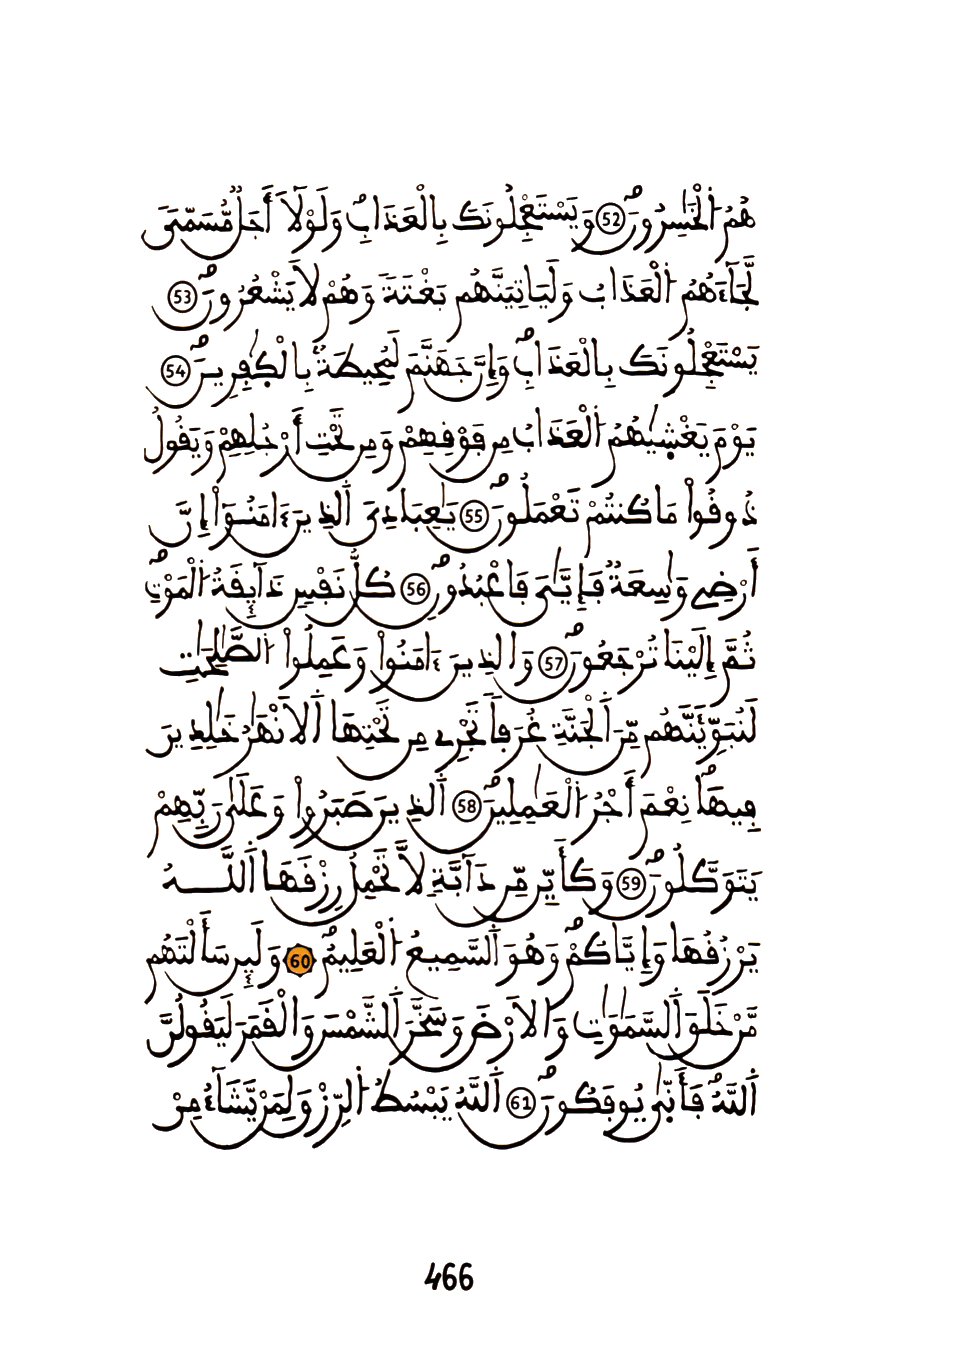 هُمُ اُ۬لْخَٰسِرُونَۖ 52 وَيَسْتَعْجِلُونَكَ بِالْعَذَابِۖ وَلَوْلَآ أَجَلٞ مُّسَمّيٗ
لَّجَآءَهُمُ اُ۬لْعَذَابُ وَلَيَاتِيَنَّهُم بَغْتَةٗ وَهُمْ لَا يَشْعُرُونَۖ 53
يَسْتَعْجِلُونَكَ بِالْعَذَابِۖ وَإِنَّ جَهَنَّمَ لَمُحِيطَةُۢ بِالْكٰ۪فِرِينَۖ 54
يَوْمَ يَغْشَيٰهُمُ اُ۬لْعَذَابُ مِن فَوْقِهِمْ وَمِن تَحْتِ أَرْجُلِهِمْ وَيَقُولُ
ذُوقُواْ مَا كُنتُمْ تَعْمَلُونَۖ 55 يَٰعِبَادِيَ اَ۬لذِينَ ءَامَنُوٓاْ إِنَّ
أَرْضِے وَٰسِعَةٞ فَإِيَّٰيَ فَاعْبُدُونِۖ 56 كُلُّ نَفْسٖ ذَآئِقَةُ اُ۬لْمَوْتِ
ثُمَّ إِلَيْنَا تُرْجَعُونَۖ 57 وَالذِينَ ءَامَنُواْ وَعَمِلُواْ اُ۬لصَّٰلِحَٰتِ
لَنُبَوِّئَنَّهُم مِّنَ اَ۬لْجَنَّةِ غُرَفاٗ تَجْرِے مِن تَحْتِهَا اَ۬لَانْهَٰرُ خَٰلِدِينَ
فِيهَاۖ نِعْمَ أَجْرُ اُ۬لْعَٰمِلِينَۖ 58 اَ۬لذِينَ صَبَرُواْ وَعَلَيٰ رَبِّهِمْ
يَتَوَكَّلُونَۖ 59 وَكَأَيِّن مِّن دَآبَّةٖ لَّا تَحْمِلُ رِزْقَهَا اَ۬للَّهُ
يَرْزُقُهَا وَإِيَّاكُمْۖ وَهُوَ اَ۬لسَّمِيعُ اُ۬لْعَلِيمُۖ 60 وَلَئِن سَأَلْتَهُم
مَّنْ خَلَقَ اَ۬لسَّمَٰوَٰتِ وَالَارْضَ وَسَخَّرَ اَ۬لشَّمْسَ وَالْقَمَرَ لَيَقُولُنَّ
اَ۬للَّهُۖ فَأَنّ۪يٰ يُوفَكُونَۖ 61 اَ۬للَّهُ يَبْسُطُ اُ۬لرِّزْقَ لِمَنْ يَّشَآءُ مِنْ
466